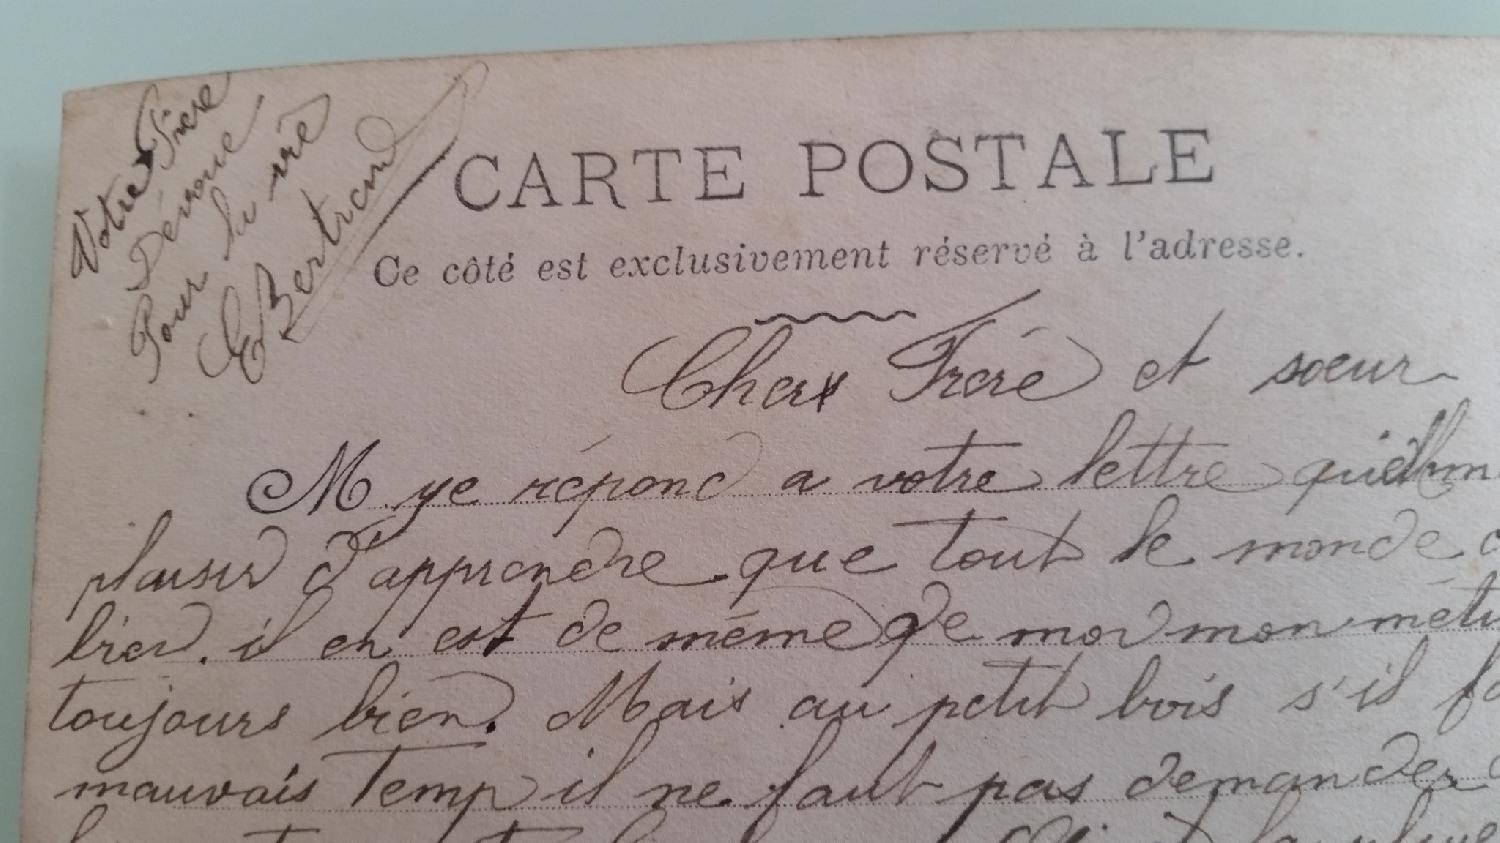 Votre Frere
Dévoué
Pour la vie
E Bertrand
CARTE POSTALE
Ce côté est exclusivement réservé à l'adresse.
Cher Frére et sœur
M ye répond a votre lettre
plaisir d'apprendre que tout le monde
bien. il en est de même de moi mon
toujours bien. Mais au petit bois s'il
mauvais Temp il ne faut pas demander